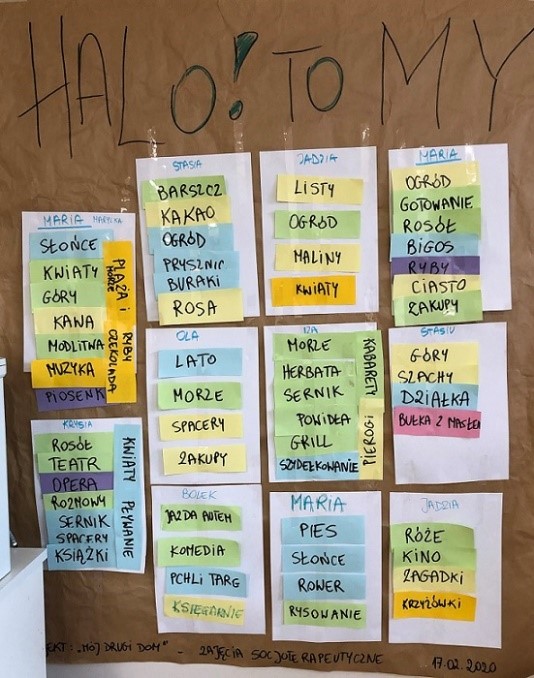 HALO! TO MY
STASIA
BARSZCZ
KAKAO
OGRÓD
PRYSZNIC
BURAKI
ROSA
JADZIA
LISTY
OGRÓD
MALINY
KWIATY
MARIA
OGRÓD
GOTOWANIE
ROSÓŁ
BIGOS
RYBY
CIASTO
ZAKUPY
MARIA MARYLKA
SŁOŃCE
KWIATY
GÓRY
KAWA
MODLITWA
MUZYKA
PIOSENK
PLAŻA I
MORZE
RYBY
CZEKOLADA
OLA
LATO
MORZE
SPACERY
ZAKUPY
IZA
MORZE
HERBATA
SERNIK
POWIDŁA
GRILL
SZYDEŁKOWANIE
KABARETY
PIEROGI
STASIU
GÓRY
SZACHY
DZIAŁKA
BUŁKA Z MASŁEM
KRYSIA
ROSÓŁ
TEATR
OPERA
ROZMOWY
SERNIK
SPACERY
KSIĄŻKI
KWIATY
PŁYWANIE
BOLEK
JAZDA AUTEM
KOMEDIA
PCHLI TARG
KSIĘGARNIE
MARIA
PIES
SŁOŃCE
ROWER
RYSOWANIE
JADZIA
RÓŻE
KINO
ZAGADKI
KRZYŻÓWKI
EKT: "MÓJ DRUGI DOM" - ZAJĘCIA SOCJOTERAPEUTYCZNE 17.02.2020